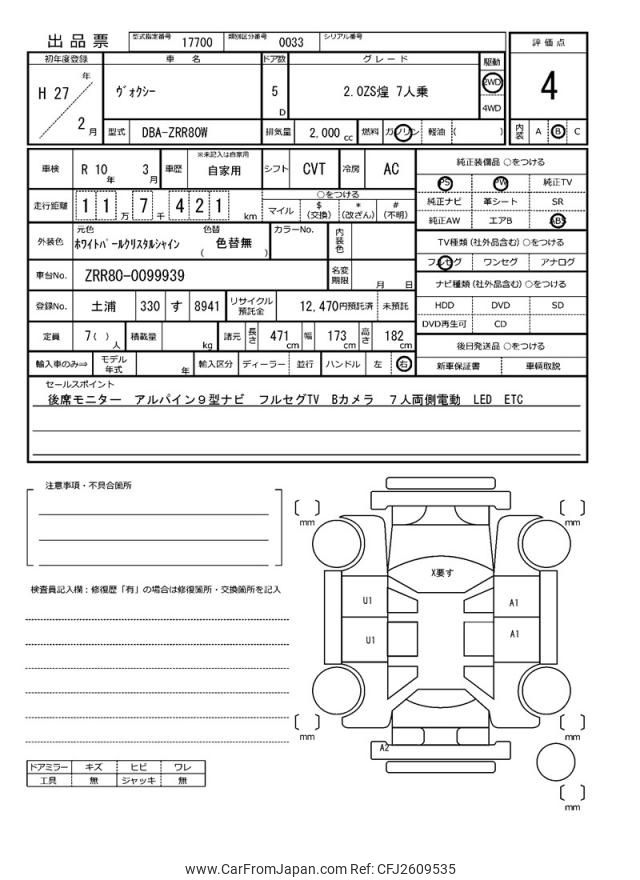 出品票 型式指定番号 17700 類別区分番号 0033 シリアル番号
評価点
4
内装 A B C
初年度登録 車名 ドア数 グレード 駆動
H 27 年 2 月 ヴォクシー 5 D 2.0ZS煌 7人乗 2WD 4WD
型式 DBA-ZRR80W 排気量 2,000 cc 燃料 ガソリン 軽油 ( )
車検 R 10 年 3 月 車歴 ※未記入は自家用 自家用 シフト CVT 冷房 AC
走行距離 1 1 万 7 千 4 2 1 km
○をつける
マイル $ (交換) * (改ざん) # (不明)
外装色 元色 ホワイトパールクリスタルシャイン 色替 ( 色替無 ) カラーNo. 内装色
車台No. ZRR80-0099939 名変期限 月 日
登録No. 土浦 330 す 8941 リサイクル預託金 12,470円預託済 未預託
定員 7( ) 人 積載量 kg 諸元 長さ 471 cm 幅 173 cm 高さ 182 cm
輸入車のみ⇨ モデル年式 年 輸入区分 ディーラー 並行 ハンドル 左 右
純正装備品 ○をつける
PS PW 純正TV
純正ナビ 革シート SR
純正AW エアB ABS
TV種類 (社外品含む) ○をつける
フルセグ ワンセグ アナログ
ナビ種類 (社外品含む) ○をつける
HDD DVD SD
DVD再生可 CD
後日発送品 ○をつける
新車保証書 車輌取説
セールスポイント
後席モニター アルパイン9型ナビ フルセグTV Bカメラ 7人両側電動 LED ETC
注意事項・不具合箇所
検査員記入欄：修復歴「有」の場合は修復箇所・交換箇所を記入
ドアミラー キズ ヒビ ワレ
工具 無 ジャッキ 無
mm mm
X要す
U1 A1
U1 A1
mm mm
A2
mm
www.CarFromJapan.com Ref: CFJ2609535